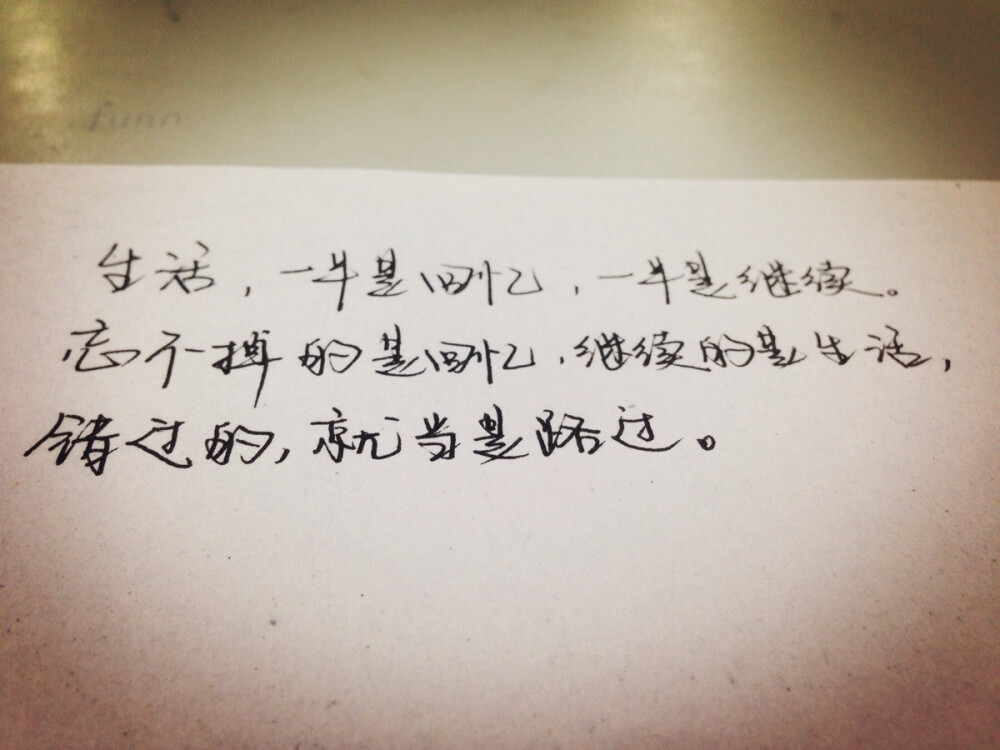 生活，一半是回忆，一半是继续。
忘不掉的是回忆，继续的是生活，
错过的，就当是路过。